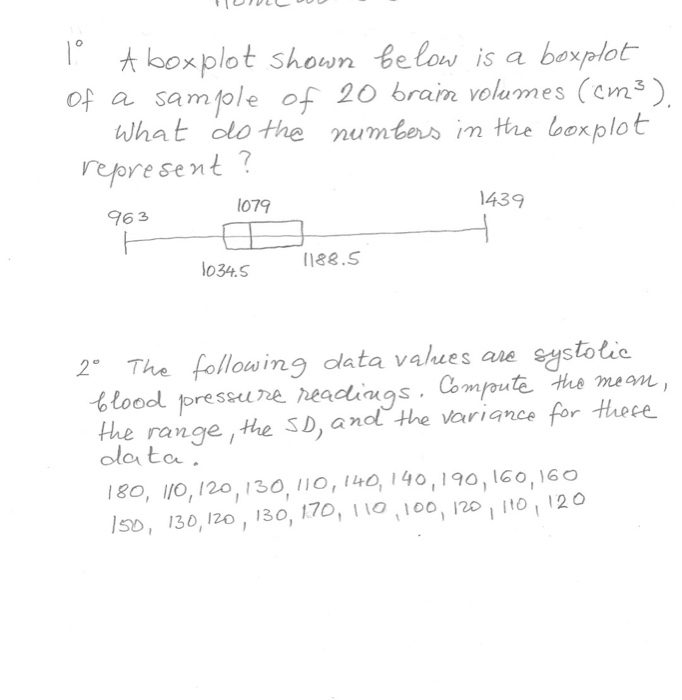 1° A boxplot shown below is a boxplot
of a sample of 20 brain volumes (cm³).
What do the numbers in the boxplot
represent?
963 1079 1439
1034.5 1188.5
2° The following data values are systolic
blood pressure readings. Compute the mean,
the range, the SD, and the variance for these
data.
180, 110, 120, 130, 110, 140, 140, 190, 160, 160
150, 130, 120, 130, 170, 110, 100, 120, 110, 120